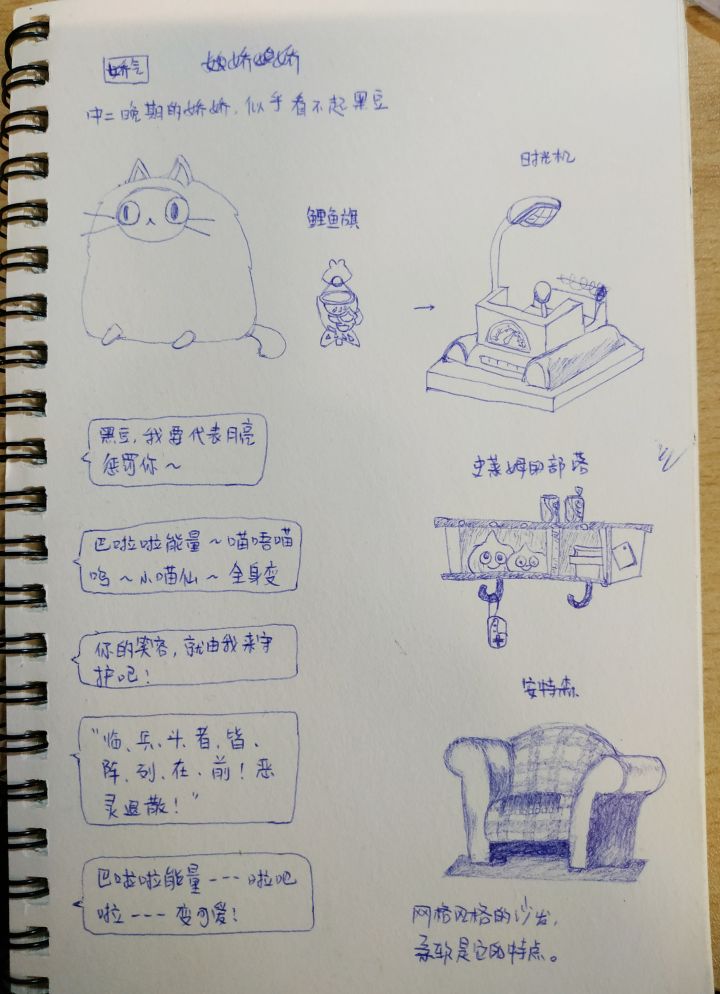 娇气
中二晚期的娇娇,似乎看不起黑豆
时光机
鲤鱼旗
黑豆,我要代表月亮
惩罚你~
史莱姆的部落
巴啦啦能量~喵唔喵
呜~小喵仙~全身变
你的笑容,就由我来守
护吧!
安特森
"临、兵、斗、者、皆、
阵、列、在、前!恶
灵退散!"
巴啦啦能量---啦吧
啦---变可爱!
网格风格的沙发,
柔软是它的特点。